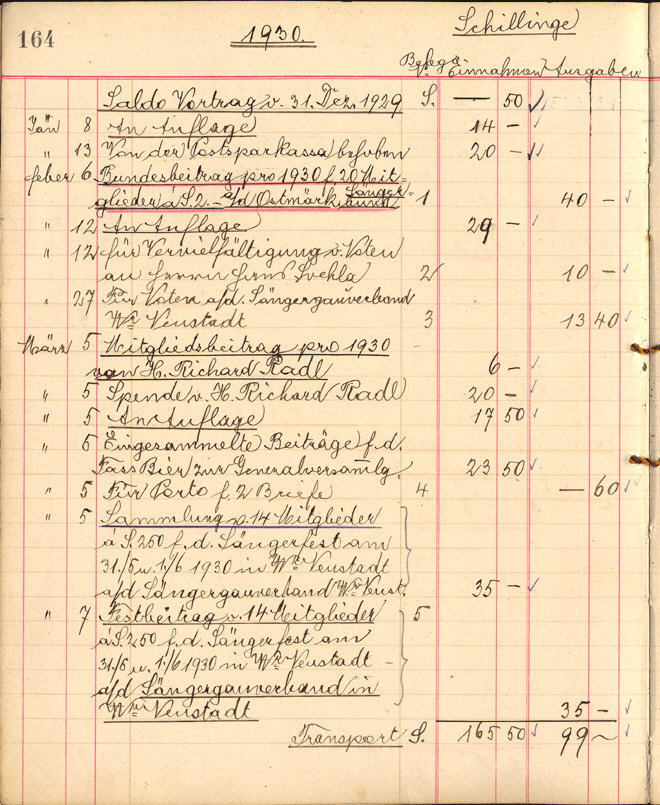 164
1930.
Schillinge
Belege No Einnahmen Ausgaben
Saldo Vortrag v. 31. Dez. 1929 S. — 50
Jän 8 An Auflage 14 –
" 13 Von der Postsparkassa behoben 20 –
feber 6 Bundesbeitrag pro 1930 f. 20 Mit=
glieder á S. 2.– a/d Ostmärk. Sänger= bund 1 40 –
" 12 An Auflage 29 –
" 12 für Vervielfältigung v. Noten
an Herrn Svehla 2 10 –
" 27 Für Noten a/d. Sängergauverband
Wr Neustadt 3 13 40
März 5 Mitgliedsbeitrag pro 1930
von H. Richard Radl 6 –
" 5 Spende v. H. Richard Radl 20 –
" 5 An Auflage 17 50
" 5 Eingesammelte Beiträge f. d.
Fass Bier zur Generalversamlg. 23 50
" 5 Für Porto f. 2 Briefe 4 — 60
" 5 Sammlung v. 14 Mitglieder
á S. 250 f. d. Sängerfest am
31./5 u. 1./6 1930 in Wr Neustadt
a/d Sängergauverband Wr Neust. 35 –
" 7 Festbeitrag v. 14 Mitglieder 5
á S. 250 f. d. Sängerfest am
31./5 u. 1./6 1930 in Wr Neustadt –
a/d Sängergauverband in
Wr Neustadt 35 –
Transport S. 165 50 99 ~